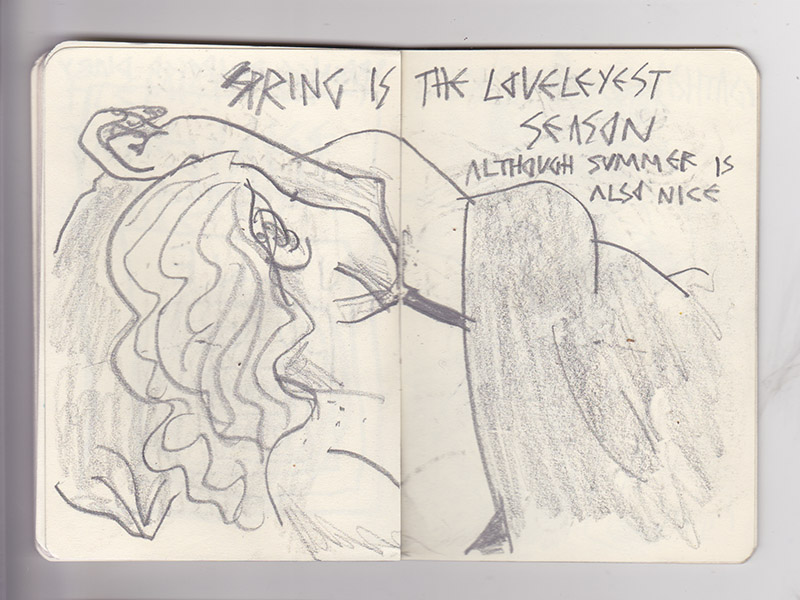 SPRING IS THE LOVELEYEST
SEASON
ALTHOUGH SUMMER IS
ALSO NICE